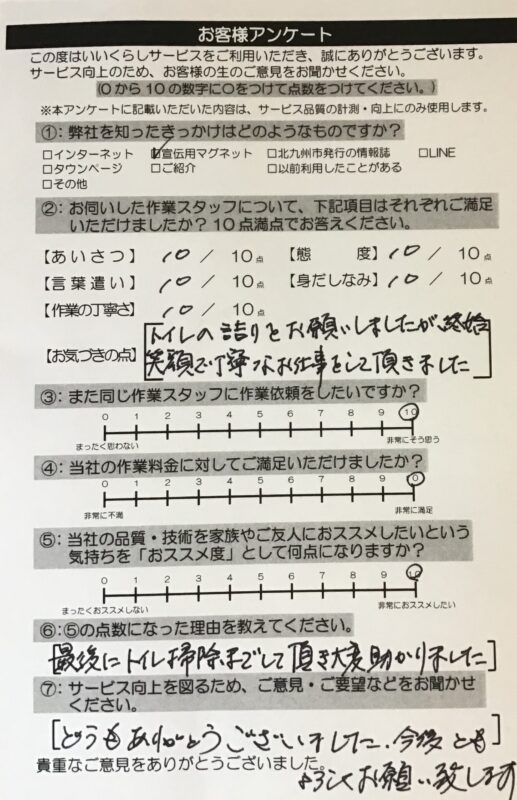 お客様アンケート
この度はいいくらしサービスをご利用いただき、誠にありがとうございます。
サービス向上のため、お客様の生のご意見をお聞かせください。
(0から10の数字に○をつけて点数をつけてください。)
※本アンケートに記載いただいた内容は、サービス品質の計測・向上にのみ使用します。
①：弊社を知ったきっかけはどのようなものですか？
□インターネット ☑宣伝用マグネット □北九州市発行の情報誌 □LINE
□タウンページ □ご紹介 □以前利用したことがある
□その他
②：お伺いした作業スタッフについて、下記項目はそれぞれご満足
いただけましたか？10点満点でお答えください。
【あいさつ】 10 / 10点 【態度】 10 / 10点
【言葉遣い】 10 / 10点 【身だしなみ】 10 / 10点
【作業の丁寧さ】 10 / 10点
【お気づきの点】
トイレの詰りをお願いしましたが、終始
笑顔で丁寧なお仕事をして頂きました
③：また同じ作業スタッフに作業依頼をしたいですか？
0 1 2 3 4 5 6 7 8 9 10
まったく思わない 非常にそう思う
④：当社の作業料金に対してご満足いただけましたか？
0 1 2 3 4 5 6 7 8 9 10
非常に不満 非常に満足
⑤：当社の品質・技術を家族やご友人におススメしたいという
気持ちを「おススメ度」として何点になりますか？
0 1 2 3 4 5 6 7 8 9 10
まったくおススメしない 非常におススメしたい
⑥：⑤の点数になった理由を教えてください。
[最後にトイレ掃除までして頂き大変助かりました]
⑦：サービス向上を図るため、ご意見・ご要望などをお聞かせ
ください。
[どうもありがとうございました、今後とも]
よろしくお願い致します
貴重なご意見をありがとうございました。